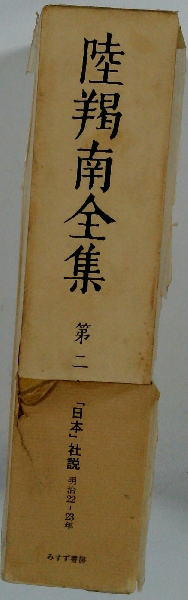 陸羯南全集
第二
「日本」社説 明治22-23年
みすず書房